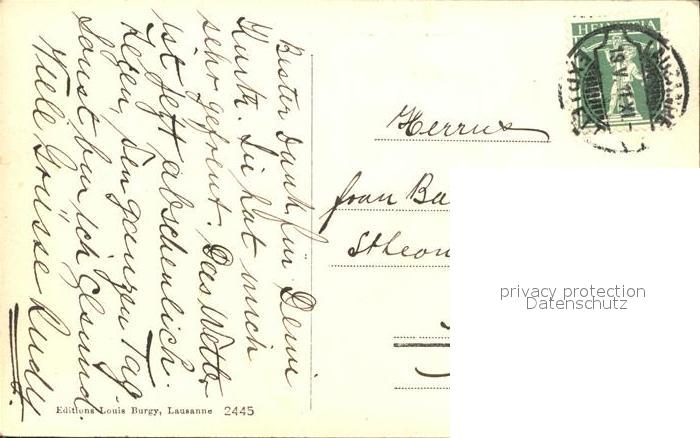 Bester Dank für Deine
Karte. Sie hat mich
sehr gefreut. Das Wetter
ist jetzt abscheulich.
Regen, den ganzen Tag.
Sonst bin ich Gesund.
Viele Grüsse Rudy.
HELVETIA
LAUSANNE
Frau Ba
St Leon
privacy protection
Datenschutz
Editions Louis Burgy, Lausanne 2445